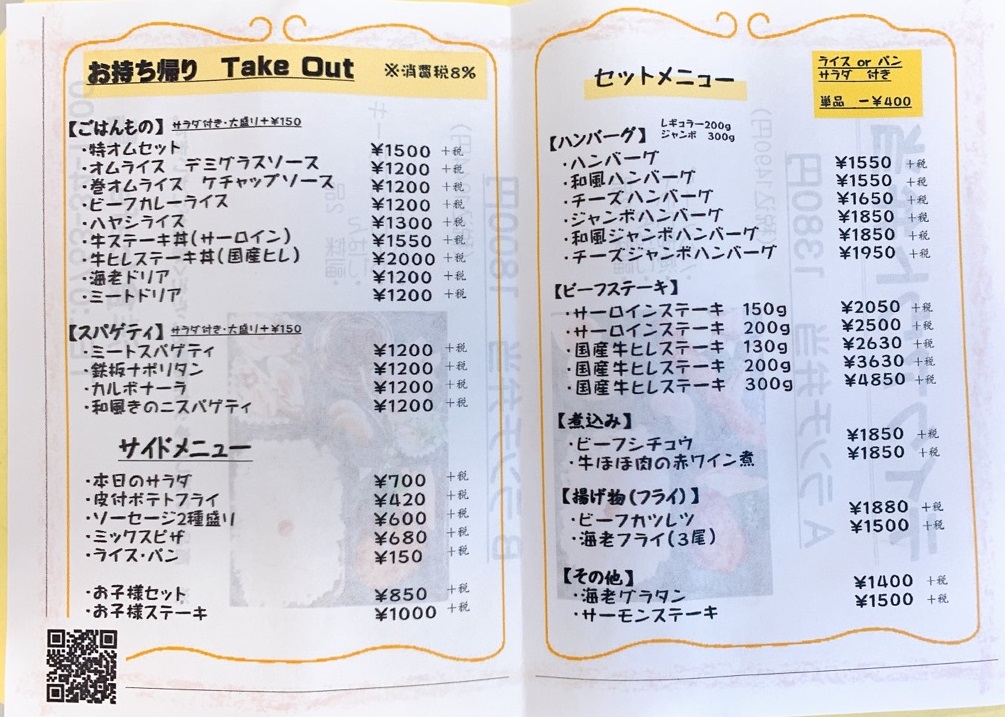 お持ち帰り Take Out ※消費税8%
【ごはんもの】 サラダ付き・大盛り+¥150
・特オムセット ¥1500 +税
・オムライス デミグラスソース ¥1200 +税
・巻オムライス ケチャップソース ¥1200 +税
・ビーフカレーライス ¥1200 +税
・ハヤシライス ¥1300 +税
・牛ステーキ丼(サーロイン) ¥1550 +税
・牛ヒレステーキ丼(国産ヒレ) ¥2000 +税
・海老ドリア ¥1200 +税
・ミートドリア ¥1200 +税
【スパゲティ】 サラダ付き・大盛り+¥150
・ミートスパゲティ ¥1200 +税
・鉄板ナポリタン ¥1200 +税
・カルボナーラ ¥1200 +税
・和風きのこスパゲティ ¥1200 +税
サイドメニュー
・本日のサラダ ¥700 +税
・皮付ポテトフライ ¥420 +税
・ソーセージ2種盛り ¥600 +税
・ミックスピザ ¥680 +税
・ライス・パン ¥150 +税
・お子様セット ¥850 +税
・お子様ステーキ ¥1000 +税
セットメニュー
ライス or パン
サラダ 付き
単品 −¥400
【ハンバーグ】 レギュラー200g
ジャンボ 300g
・ハンバーグ ¥1550 +税
・和風ハンバーグ ¥1550 +税
・チーズハンバーグ ¥1650 +税
・ジャンボハンバーグ ¥1850 +税
・和風ジャンボハンバーグ ¥1850 +税
・チーズジャンボハンバーグ ¥1950 +税
【ビーフステーキ】
・サーロインステーキ 150g ¥2050 +税
・サーロインステーキ 200g ¥2500 +税
・国産牛ヒレステーキ 130g ¥2630 +税
・国産牛ヒレステーキ 200g ¥3630 +税
・国産牛ヒレステーキ 300g ¥4850 +税
【煮込み】
・ビーフシチュウ ¥1850 +税
・牛ほほ肉の赤ワイン煮 ¥1850 +税
【揚げ物(フライ)】
・ビーフカツレツ ¥1880 +税
・海老フライ(3尾) ¥1500 +税
【その他】
・海老グラタン ¥1400 +税
・サーモンステーキ ¥1500 +税